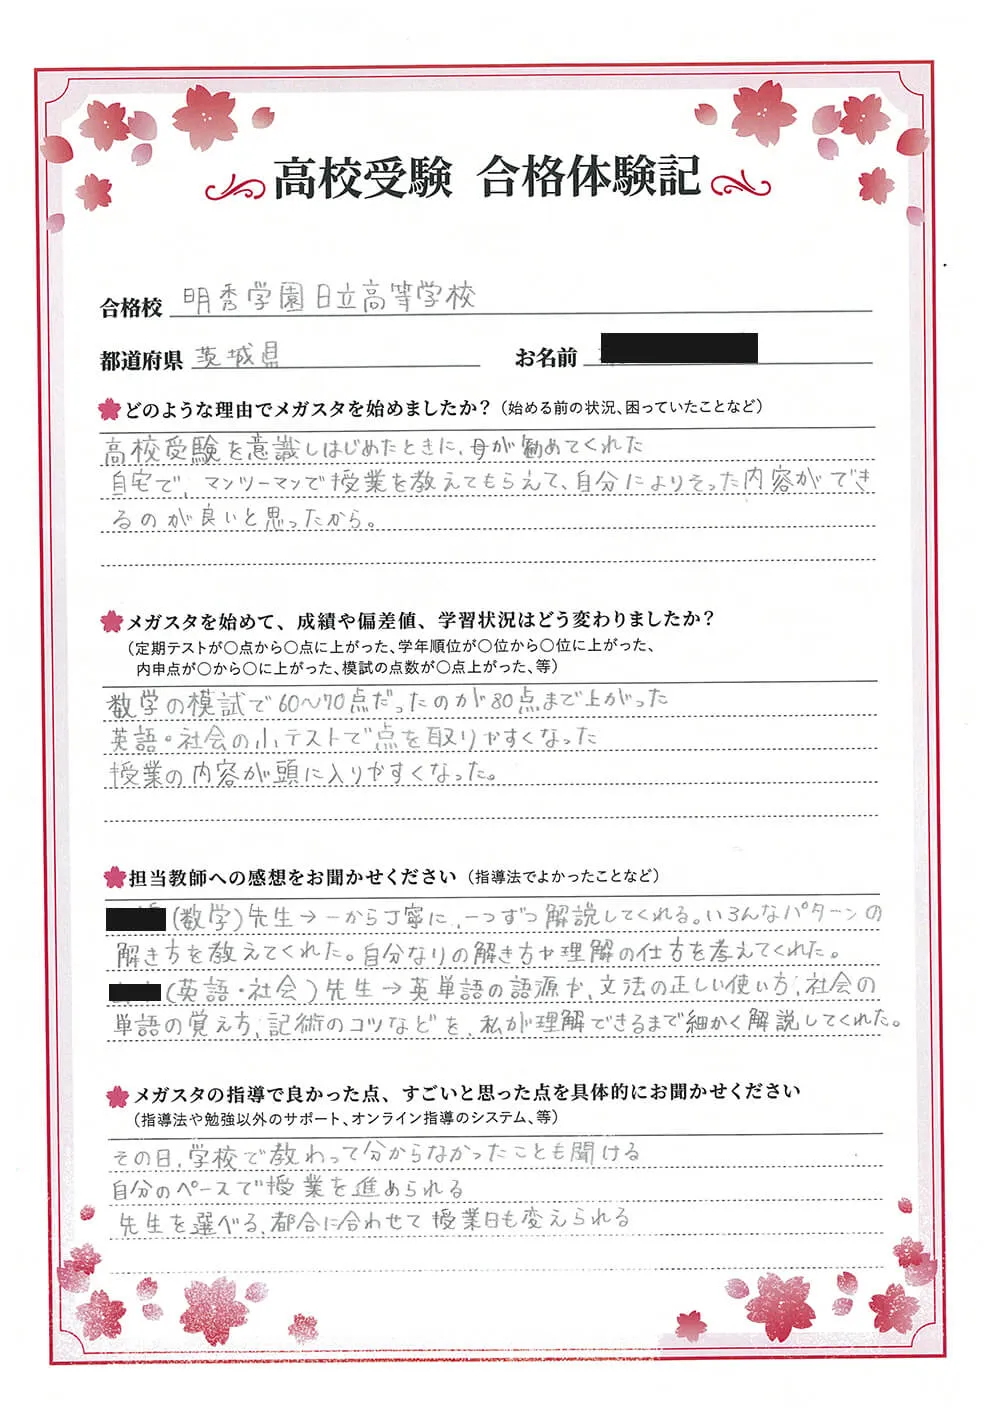 高校受験 合格体験記
合格校 明秀学園日立高等学校
都道府県 茨城県 お名前
どのような理由でメガスタを始めましたか？（始める前の状況、困っていたことなど）
高校受験を意識しはじめたときに、母が勧めてくれた
自宅で、マンツーマンで授業を教えてもらえて、自分によりそった内容ができ
るのが良いと思ったから。
メガスタを始めて、成績や偏差値、学習状況はどう変わりましたか？
（定期テストが〇点から〇点に上がった、学年順位が〇位から〇位に上がった、
内申点が〇から〇に上がった、模試の点数が〇点上がった、等）
数学の模試で60～70点だったのが80点まで上がった
英語・社会の小テストで点を取りやすくなった
授業の内容が頭に入りやすくなった。
担当教師への感想をお聞かせください（指導法でよかったことなど）
(数学)先生→一から丁寧に、一つずつ解説してくれる。いろんなパターンの
解き方を教えてくれた。自分なりの解き方や理解の仕方を考えてくれた。
(英語・社会)先生→英単語の語源や、文法の正しい使い方、社会の
単語の覚え方、記術のコツなどを、私が理解できるまで細かく解説してくれた。
メガスタの指導で良かった点、すごいと思った点を具体的にお聞かせください
（指導法や勉強以外のサポート、オンライン指導のシステム、等）
その日、学校で教わって分からなかったことも聞ける
自分のペースで授業を進められる
先生を選べる、都合に合わせて授業日も変えられる